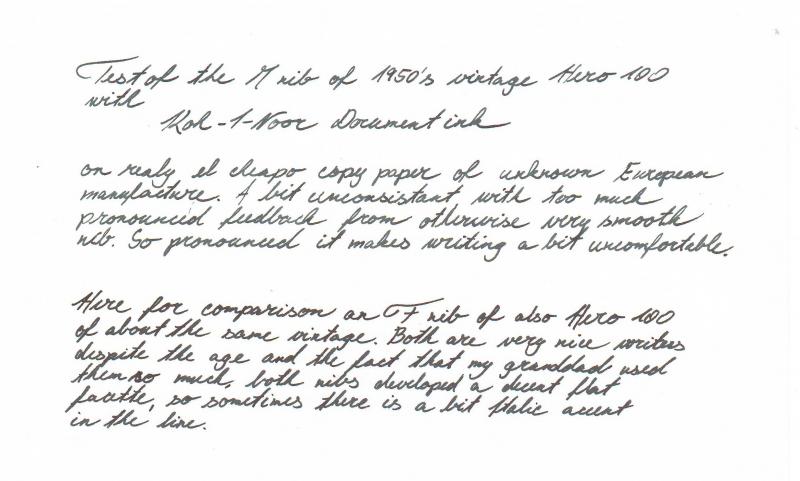 Test of the M nib of 1950's vintage Hero 100
with
Koh-I-Noor Document ink
on realy el cheapo copy paper of unknown European
manufacture. A bit unconsistant with too much
pronounced feedback from otherwise very smooth
nib. So pronounced it makes writing a bit uncomfortable.
Here for comparison an F nib of also Hero 100
of about the same vintage. Both are very nice writers
despite the age and the fact that my granddad used
them so much, both nibs developed a decent flat
facette, so sometimes there is a bit Italic accent
in the line.